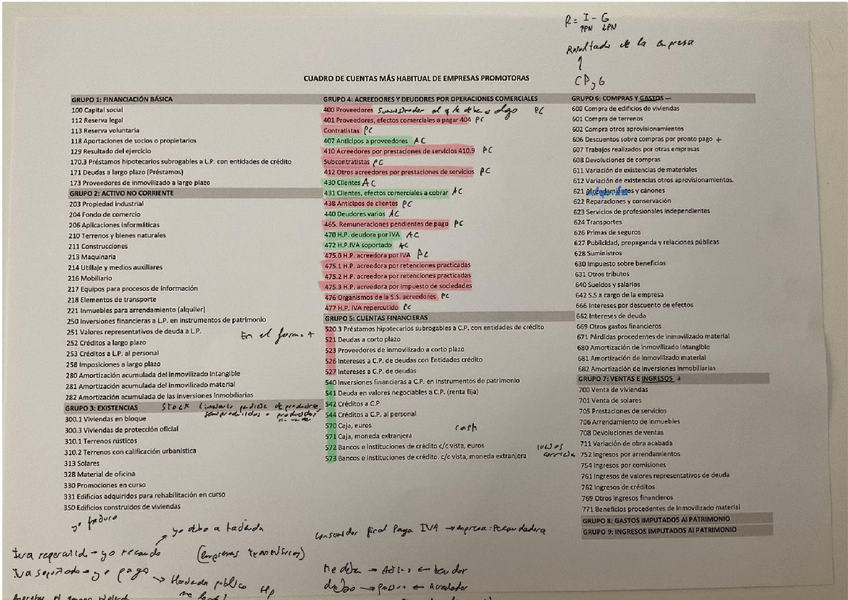 R = I - G
Resultado de la empresa
CUADRO DE CUENTAS MÁS HABITUAL DE EMPRESAS PROMOTORAS
GRUPO 1: FINANCIACIÓN BÁSICA
100 Capital social
112 Reserva legal
113 Reserva voluntaria
118 Aportaciones de socios o propietarios
129 Resultado del ejercicio
170.3 Préstamos hipotecarios subrogables a L.P. con entidades de crédito
171 Deudas a largo plazo (Préstamos)
173 Proveedores de inmovilizado a largo plazo
GRUPO 2: ACTIVO NO CORRIENTE
203 Propiedad industrial
204 Fondo de comercio
206 Aplicaciones informáticas
210 Terrenos y bienes naturales
211 Construcciones
213 Maquinaria
214 Utillaje y medios auxiliares
216 Mobiliario
217 Equipos para procesos de información
218 Elementos de transporte
221 Inmuebles para arrendamiento (alquiler)
250 Inversiones financieras a L.P. en instrumentos de patrimonio
251 Valores representativos de deuda a L.P.
252 Créditos a largo plazo
253 Créditos a L.P. al personal
258 Imposiciones a largo plazo
280 Amortización acumulada del inmovilizado intangible
281 Amortización acumulada del inmovilizado material
282 Amortización acumulada de las inversiones inmobiliarias
GRUPO 3: EXISTENCIAS Stock
300.1 Viviendas en bloque
300.3 Viviendas de protección oficial
310.1 Terrenos rústicos
310.2 Terrenos con calificación urbanística
313 Solares
328 Material de oficina
330 Promociones en curso
331 Edificios adquiridos para rehabilitación en curso
350 Edificios construidos de viviendas
GRUPO 4: ACREEDORES Y DEUDORES POR OPERACIONES COMERCIALES
400 Proveedores PC
401 Proveedores, efectos comerciales a pagar 404 PC
Contratistas PC
407 Anticipos a proveedores AC
410 Acreedores por prestaciones de servicios 410.9 PC
Subcontratistas PC
412 Otros acreedores por prestaciones de servicios PC
430 Clientes AC
431 Clientes, efectos comerciales a cobrar AC
438 Anticipos de clientes PC
440 Deudores varios AC
465. Remuneraciones pendientes de pago PC
470 H.P. deudora por IVA AC
472 H.P.IVA soportado AC
475.0 H.P. acreedora por IVA PC
475.1 H.P. acreedora por retenciones practicadas
475.2 H.P. acreedora por retenciones practicadas
475.3 H.P. acreedora por impuesto de sociedades
476 Organismos de la S.S. acreedores PC
477 H.P. IVA repercutido PC
GRUPO 5: CUENTAS FINANCIERAS
520.3 Préstamos hipotecarios subrogables a C.P. con entidades de crédito
521 Deudas a corto plazo
523 Proveedores de inmovilizado a corto plazo
526 Intereses a C.P. de deudas con Entidades crédito
527 Intereses a C.P. de deudas
540 Inversiones financieras a C.P. en instrumentos de patrimonio
541 Deuda en valores negociables a C.P. (renta fija)
542 Créditos a C.P.
544 Créditos a C.P. al personal
570 Caja, euros cash
571 Caja, moneda extranjera
572 Bancos e instituciones de crédito c/c vista, euros
573 Bancos e instituciones de crédito. c/c vista, moneda extranjera
GRUPO 6: COMPRAS Y GASTOS —
600 Compra de edificios de viviendas
601 Compra de terrenos
602 Compra otros aprovisionamientos
606 Descuentos sobre compras por pronto pago +
607 Trabajos realizados por otras empresas
608 Devoluciones de compras
611 Variación de existencias de materiales
612 Variación de existencias otros aprovisionamientos.
621 y cánones
622 Reparaciones y conservación
623 Servicios de profesionales independientes
624 Transportes
626 Primas de seguros
627 Publicidad, propaganda y relaciones públicas
628 Suministros
630 Impuesto sobre beneficios
631 Otros tributos
640 Sueldos y salarios
642 S.S a cargo de la empresa
666 Intereses por descuento de efectos
662 Intereses de deuda
669 Otros gastos financieros
671 Pérdidas procedentes de inmovilizado material
680 Amortización de inmovilizado intangible
681 Amortización de inmovilizado material
682 Amortización de inversiones inmobiliarias
GRUPO 7: VENTAS E INGRESOS +
700 Venta de viviendas
701 Venta de solares
705 Prestaciones de servicios
706 Arrendamiento de inmuebles
708 Devoluciones de ventas
711 Variación de obra acabada
752 Ingresos por arrendamientos
754 Ingresos por comisiones
761 Ingresos de valores representativos de deuda
762 Ingresos de créditos
769 Otros ingresos financieros
771 Beneficios procedentes de inmovilizado material
GRUPO 8: GASTOS IMPUTADOS AL PATRIMONIO
GRUPO 9: INGRESOS IMPUTADOS AL PATRIMONIO
yo debo a hacienda
Consumidor final Paga IVA → empresa: Recaudadora